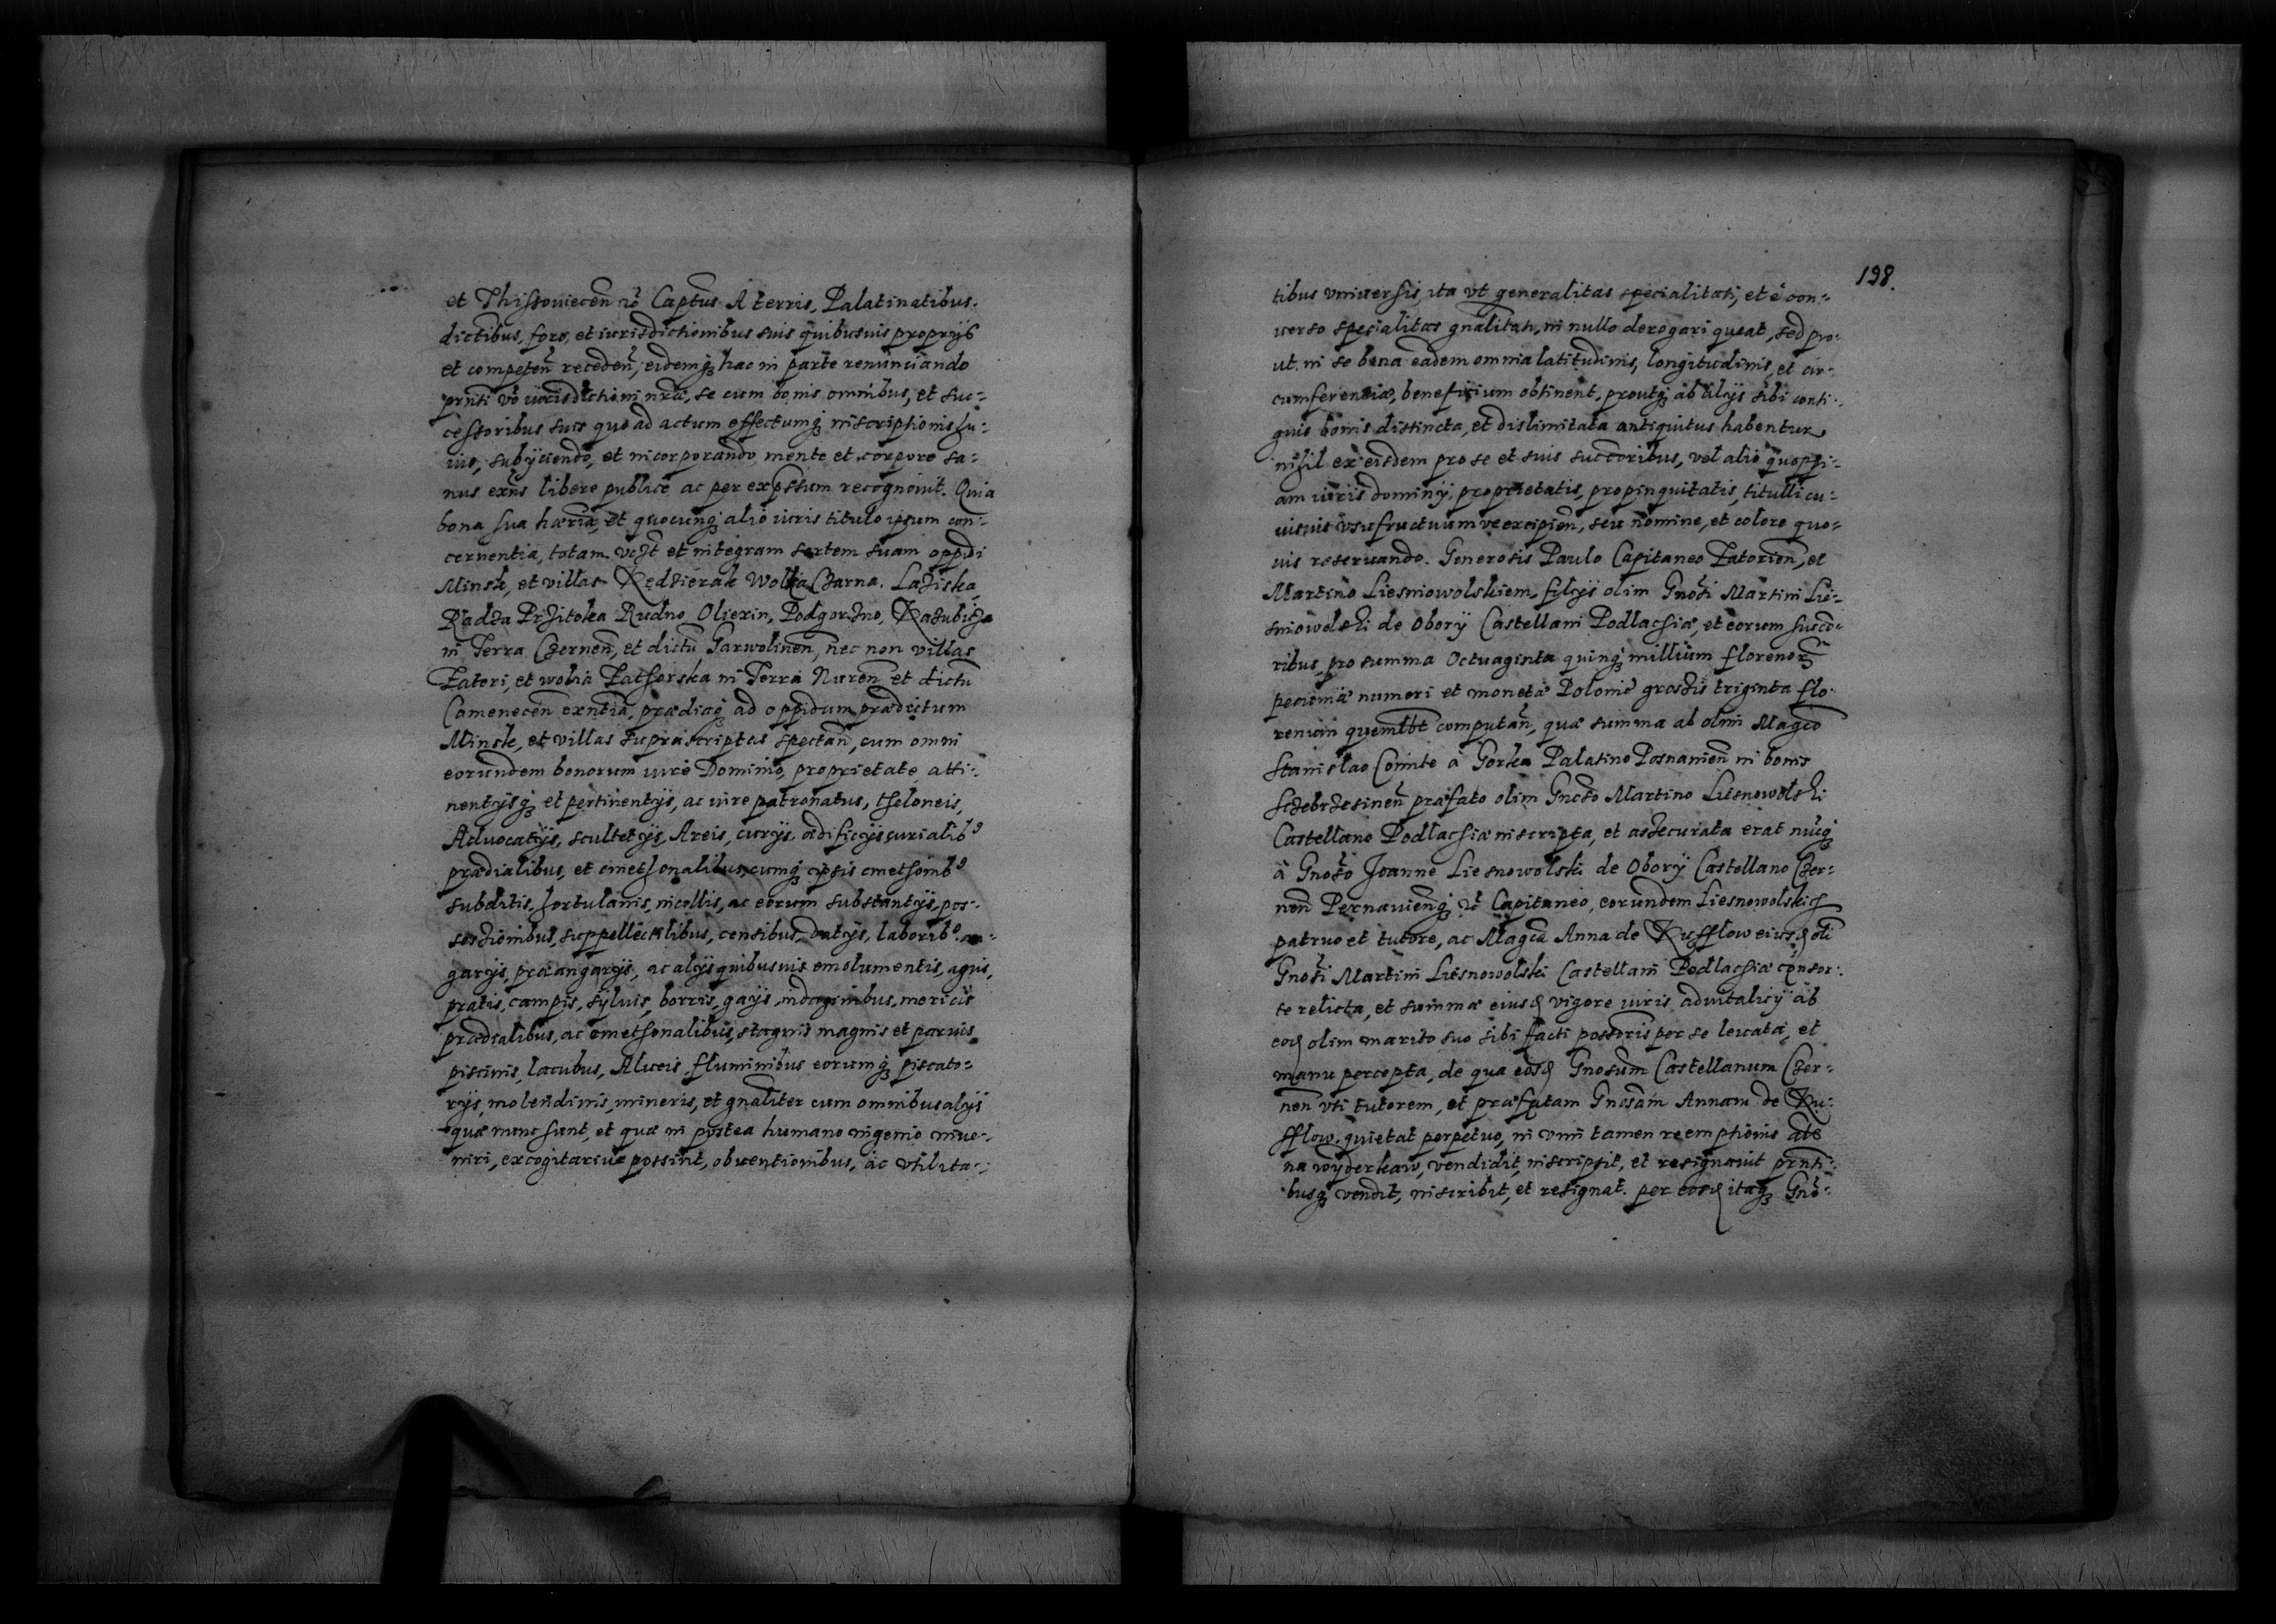 et Thissoviecen̄ zc̄ Capt̄us A terris, Palatinatibus.
dictibus, foro, et iurisdictionibus suis quibusuis proprijs
et competen̄ receden̄, eidemq; hac in parte renunciando
prn̄ti vō iurisdictioni nr̄ā, se cum bonis omnibus, et suc-
cessoribus suis quo ad actum effectumq; inscriptionis hu-
ius, subijciendo, et incorporando mente et corpore sa-
nus exn̄s libere publice ac per exp̄ssum recognouit. Quia
bona sua hæria, et quocunq; alio iuris titulo ipsum con-
cernentia, totam vczt̄ et integram sortem suam oppidi
Minsk, et villas Kędzierak Wolia Czarna. Laziska,
Radza Przitoka Rudno Oliexin, Podgorzno, Kazubicza
in Terra Czernen̄, et dictū Garwolinen̄, nec non villas
Zatori, et wolia Zathorska in Terra Nuren̄ et dictū
Camenecen̄ exn̄tia, prædiaq; ad oppidum prædictum
Minsk, et villas suprascriptas spectan̄, cum omni
eorundem bonorum iure Dominio, proprietate, atti-
nentijsq; et pertinentijs, ac iure patronatus, theloneis,
Aduocatijs, scultetijs, Areis, curijs ædificijs curialib9
prædialibus, et cmethonalibus, cumq; ipsis cmethonib9
subditis, hortulanis, incollis, ac eorum substantijs, pos-
sessionibus, suppellectilibus, censibus, datijs, laborib9. an-
garijs, præangarijs, ac alijs quibusuis emolumentis, agris,
pratis, campis, syluis, borris, gays, indaginibus, mericis
prædialibus, ac cmethonalibus, stagnis magnis et paruis,
piscinis, lacubus, Alueis, fluminibus eorumq; piscato-
rijs, molendinis, mineris, et gn̄aliter cum omnibus alijs
quæ nunc sunt, et quæ in postea humano ingenio inue-
niri, excogitariue possint, obuentionibus, ac vtilita-
198.
tibus vniuersis, ita vt generalitas specialitati, et e con-
uerso specialitas gn̄alitati, in nullo derogari queat, sed pro-
ut in se bona eadem omnia latitudinis, longitudinis, et cir-
cumferentiæ, beneficium obtinent, proutq; ab alijs sibi conti-
guis bonis distincta, et dislimitata antiquitus habentur,
nihil ex eisdem pro se et suis succ̄oribus, vel alio quopi-
am iuris dominij, proprietatis, propinquitatis, titulli cu-
uisuis vsufructuum ve excipien̄, seu nomine, et colore quo-
uis reseruando. Generosis Paulo Capitaneo Zatorien̄, et
Martino Liesniowolskiem, filijs olim Gn̄osi Martini Lie-
sniowolski de Obory Castellani Podlachiæ, et eorum succō-
ribus, pro summa Octuaginta quinq; millium florenor̄
pecuniæ numeri et monetæ Poloniē grossis triginta flo-
renum quemlbt computan̄, quæ summa ab olim Magc̄o
Stanislao Comite à Gorka Palatino Posnanien̄ in bonis
Sczebrzesinen̄ præfato olim Gn̄oso Martino Liesnowolski
Castellano Podlachiæ inscripta, et assecurata erat nūcq;
à Gn̄oso Joanne Liesnowolski de Obory Castellano Czer-
nen̄ Pernauien̄q; zc̄ Capitaneo, eorundem Liesnowolskich
patruo et tutore, ac Magc̄a Anna de Kufflow eiusd olī
Gn̄osi Martini Liesnowolski Castellani Podlachiæ cōnsor-
te relicta, et summæ eiusd vigore iuris aduitalicij ab
eod olim marito suo sibi facti possōris per se leuata, et
manu percepta, de qua eosd Gn̄osum Castellanum Czer-
nen̄ vti tutorem, et præfatam Gn̄osam Annam de Ku-
fflow. quietat perpetuo, in vim tamen reemptionis als
na wyderkaw, vendidit, inscripsit, et resignauit prn̄ti-
busq; vendit, inscribit, et resignat. per eosd itaq; Gnō-